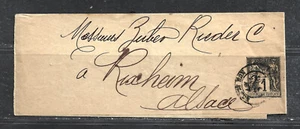 Messieurs Zuber Rieder C
à Rixheim
Alsace
1